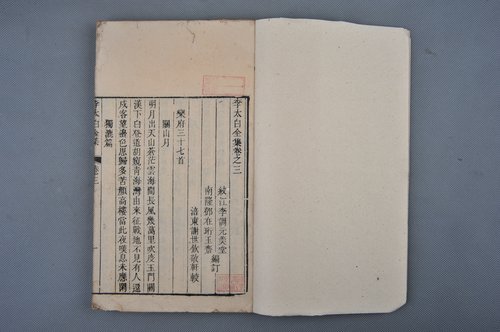 李太白全集卷之三
綿江李調元美堂
南隆鄧在珩玉齋 編訂
涪東謝世欽敬軒較
樂府三十七首
關山月
明月出天山蒼茫雲海間長風幾萬里吹度玉門關
漢下白登道胡窺青海灣由來征戰地不見有人還
戍客望邊色思歸多苦顏高樓當此夜嘆息未應閑
獨漉篇
李太白全集 卷三